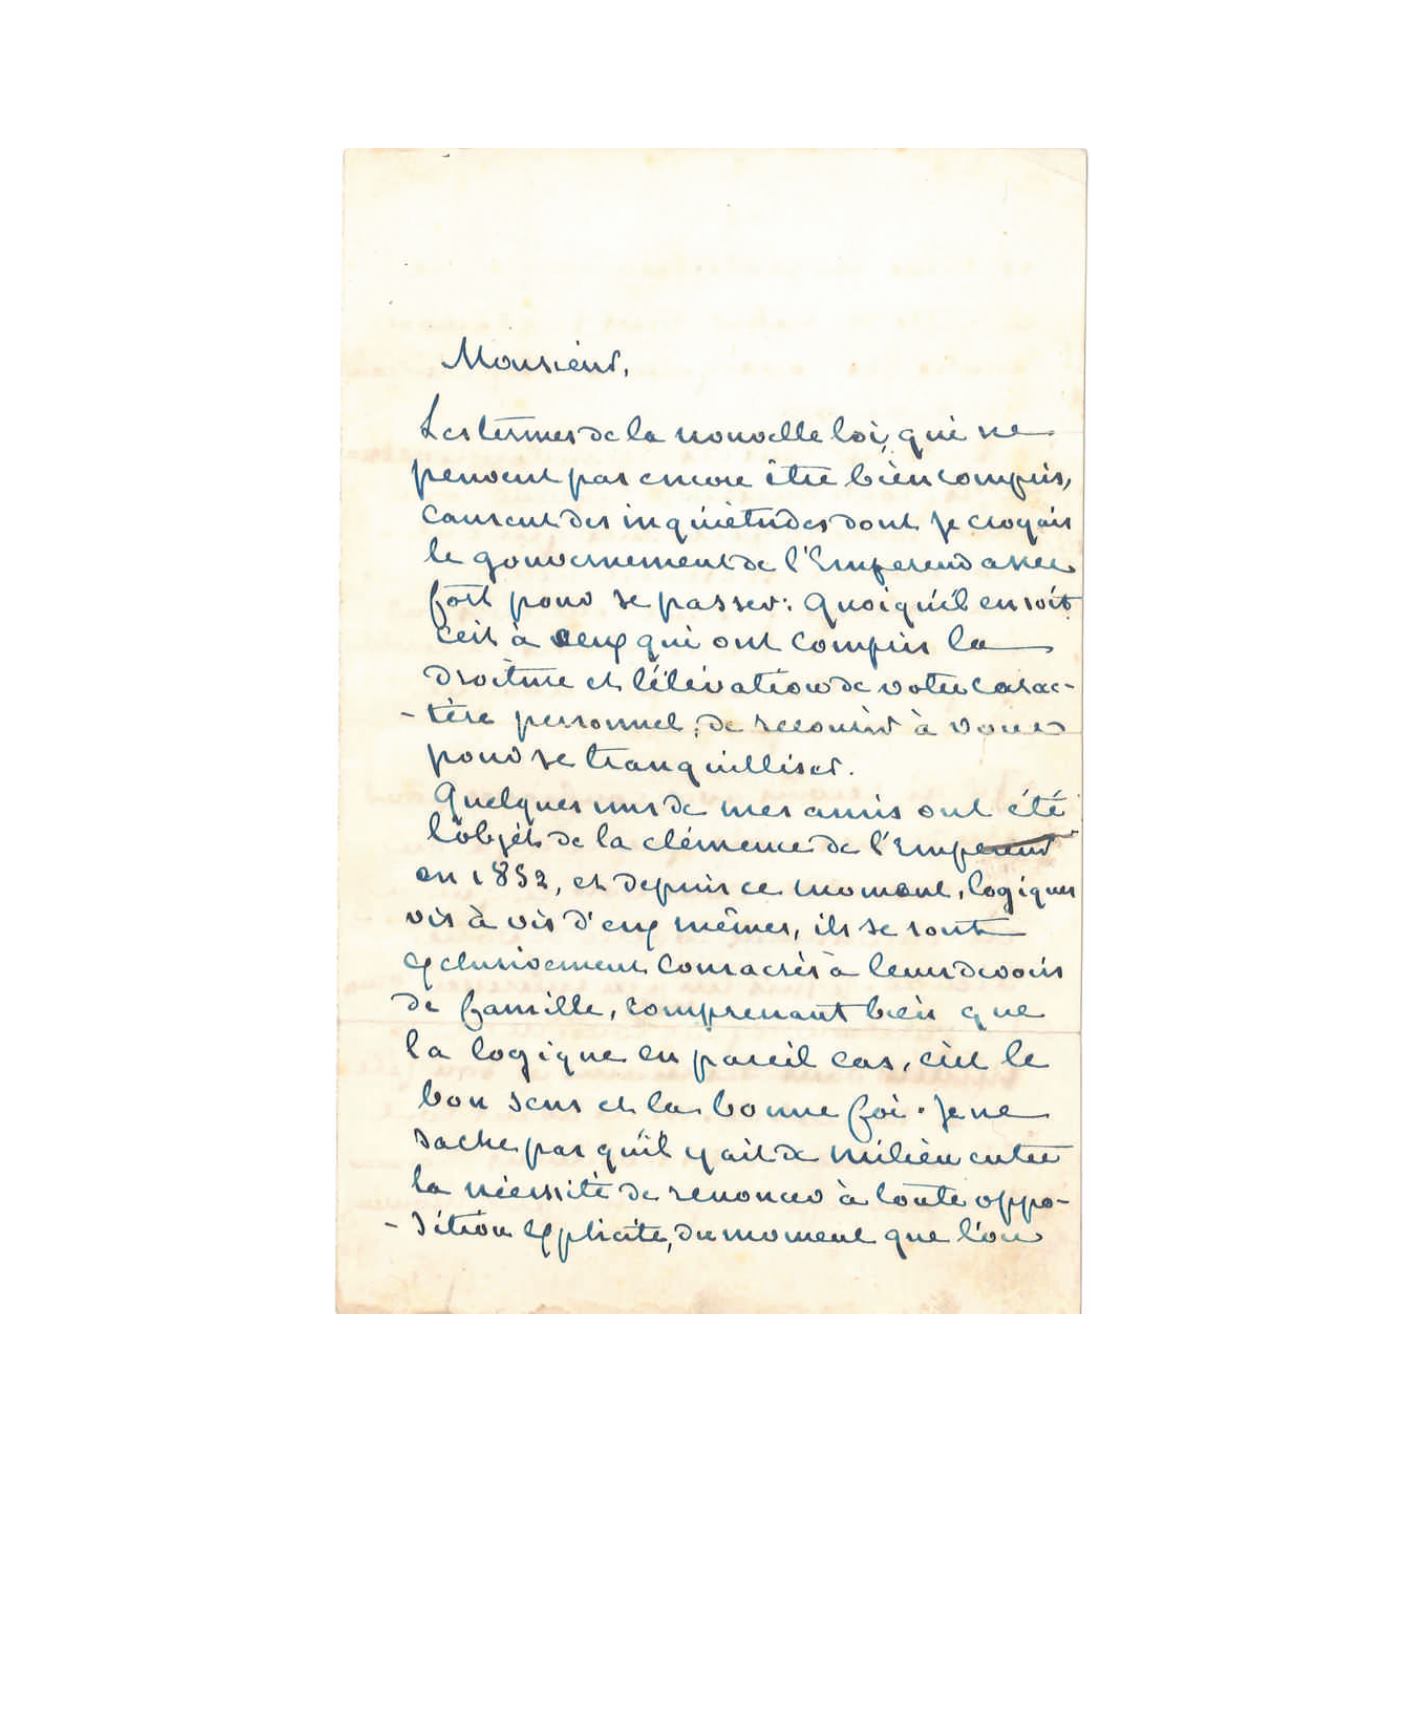 Monsieur,
Les termes de la nouvelle loi, qui ne
peuvent pas encore être bien compris,
causent des inquiétudes dont je croyais
le gouvernement de l'Empereur assez
fort pour se passer. Quoiqu'il en soit
c'est à ceux qui ont compris la
droiture et l'élévation de votre carac-
-tère personnel, de recourir à vous
pour se tranquilliser.
Quelques uns de mes amis ont été
l'objet de la clémence de l'Empereur
en 1852, et depuis ce moment, logiques
vis à vis d'eux mêmes, ils se sont
exclusivement consacrés à leurs devoirs
de famille, comprenant bien que
la logique en pareil cas, c'est le
bon sens et la bonne foi. Je ne
sache pas qu'il y ait de milieu entre
la nécessité de renoncer à toute oppo-
-sition explicite, du moment que l'on